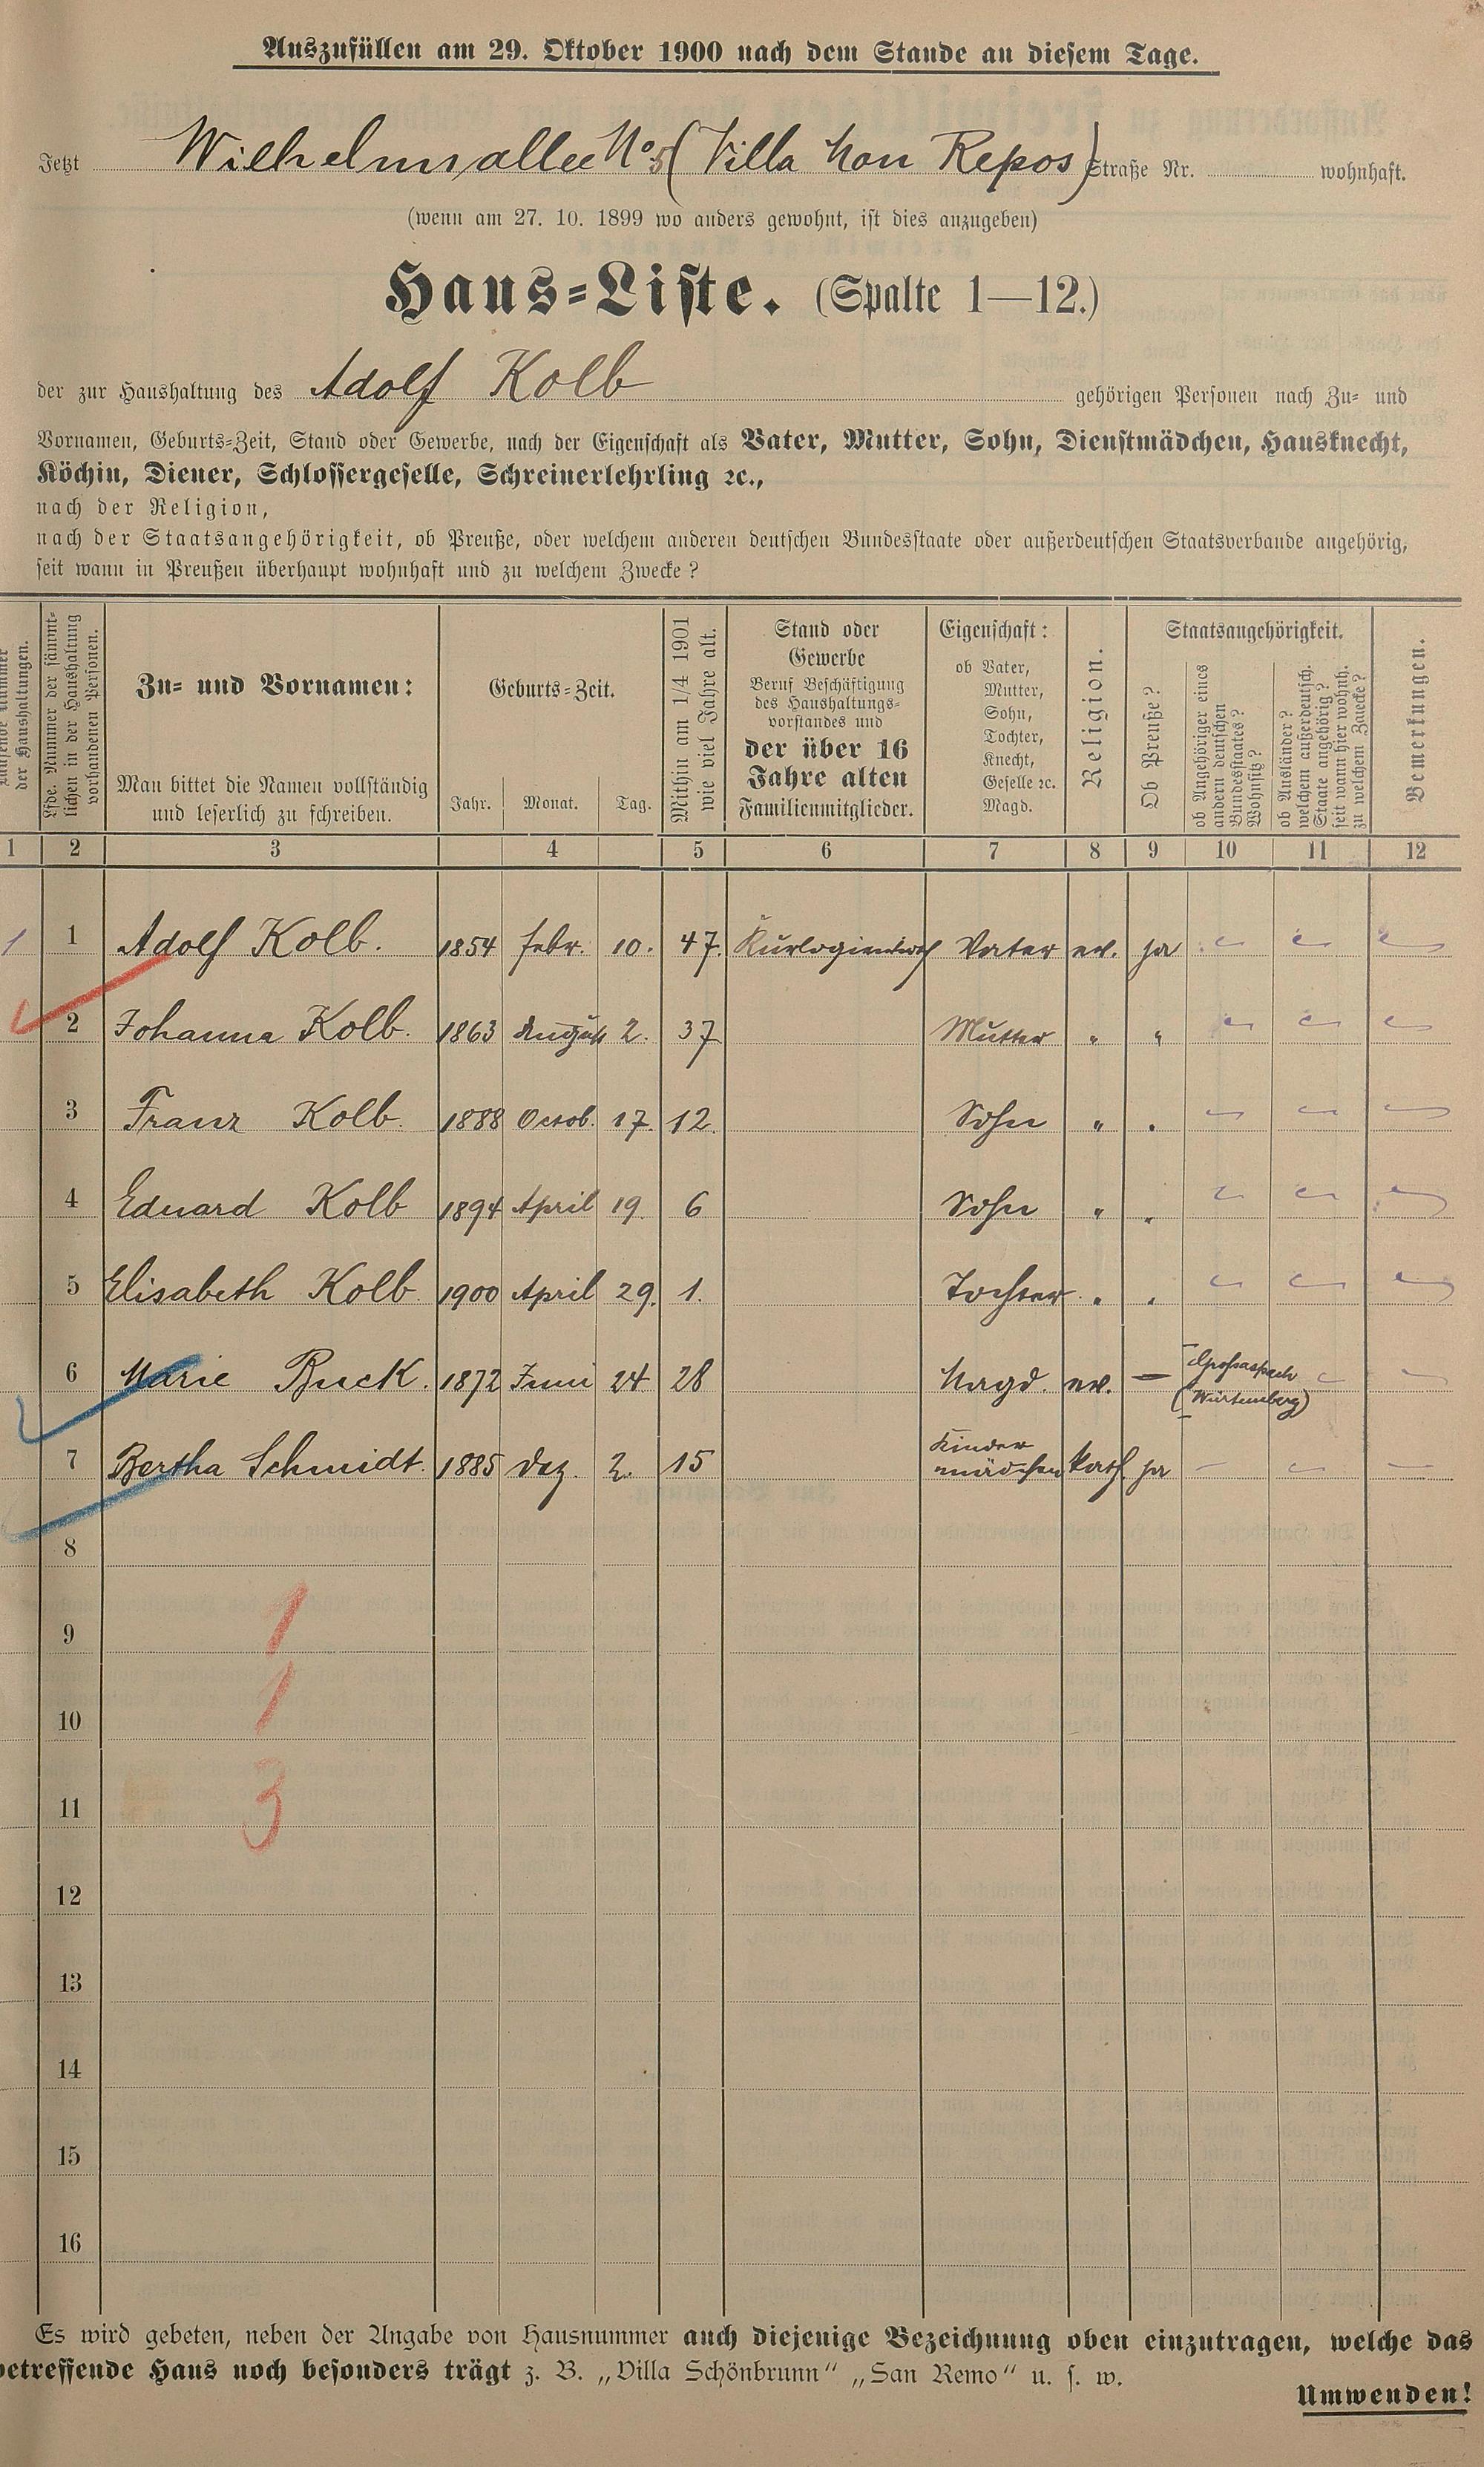 Auszufüllen am 29. Oktober 1900 nach dem Stande an diesem Tage.
Jetzt Wilhelmsallee No 5 (Villa Mon Repos) Straße Nr. wohnhaft.
(wenn am 27. 10. 1899 wo anders gewohnt, ist dies anzugeben)
Haus-Liste. (Spalte 1—12.)
der zur Haushaltung des Adolf Kolb gehörigen Personen nach Zu- und
Vornamen, Geburts-Zeit, Stand oder Gewerbe, nach der Eigenschaft als Vater, Mutter, Sohn, Dienstmädchen, Hausknecht,
Köchin, Diener, Schlossergeselle, Schreinerlehrling ꝛc.,
nach der Religion,
nach der Staatsangehörigkeit, ob Preuße, oder welchem anderen deutschen Bundesstaate oder außerdeutschen Staatsverbande angehörig,
seit wann in Preußen überhaupt wohnhaft und zu welchem Zwecke?
der Haushaltungen.
Lfde. Nummer der sämmt-
lichen in der Haushaltung
vorhandenen Personen.
Zu- und Vornamen:
Man bittet die Namen vollständig
und leserlich zu schreiben.
Geburts-Zeit.
Jahr. Monat. Tag.
Mithin am 1/4 1901
wie viel Jahre alt.
Stand oder
Gewerbe
Beruf Beschäftigung
des Haushaltungs-
vorstandes und
der über 16
Jahre alten
Familienmitglieder.
Eigenschaft:
ob Vater,
Mutter,
Sohn,
Tochter,
Knecht,
Geselle ꝛc.
Magd.
Religion.
Staatsangehörigkeit.
Ob Preuße?
ob Angehöriger eines
andern deutschen
Bundesstaates?
Wohnsitz?
ob Ausländer?
welchem außerdeutsch.
Staate angehörig?
seit wann hier wohnh.
zu welchem Zwecke?
Bemerkungen.
1 2 3 4 5 6 7 8 9 10 11 12
1 1 Adolf Kolb. 1854 Febr. 10. 47. Kurlogierwirth Vater ev. ja
2 Johanna Kolb. 1863 August 2. 37 Mutter " "
3 Franz Kolb. 1888 Octob. 17. 12. Sohn " "
4 Eduard Kolb 1894 April 19. 6 Sohn " "
5 Elisabeth Kolb. 1900 April 29. 1. Tochter " "
6 Marie Buck. 1872 Juni 24 28 Magd. ev. — Grossaspach
(Würtemberg)
7 Bertha Schmidt. 1885 Dez. 2. 15 Kinder
mädchen kath ja
8
9 1
10 1
11 3
12
13
14
15
16
Es wird gebeten, neben der Angabe von Hausnummer auch diejenige Bezeichnung oben einzutragen, welche das
betreffende Haus noch besonders trägt z. B. „Villa Schönbrunn“ „San Remo“ u. s. w.
Umwenden!